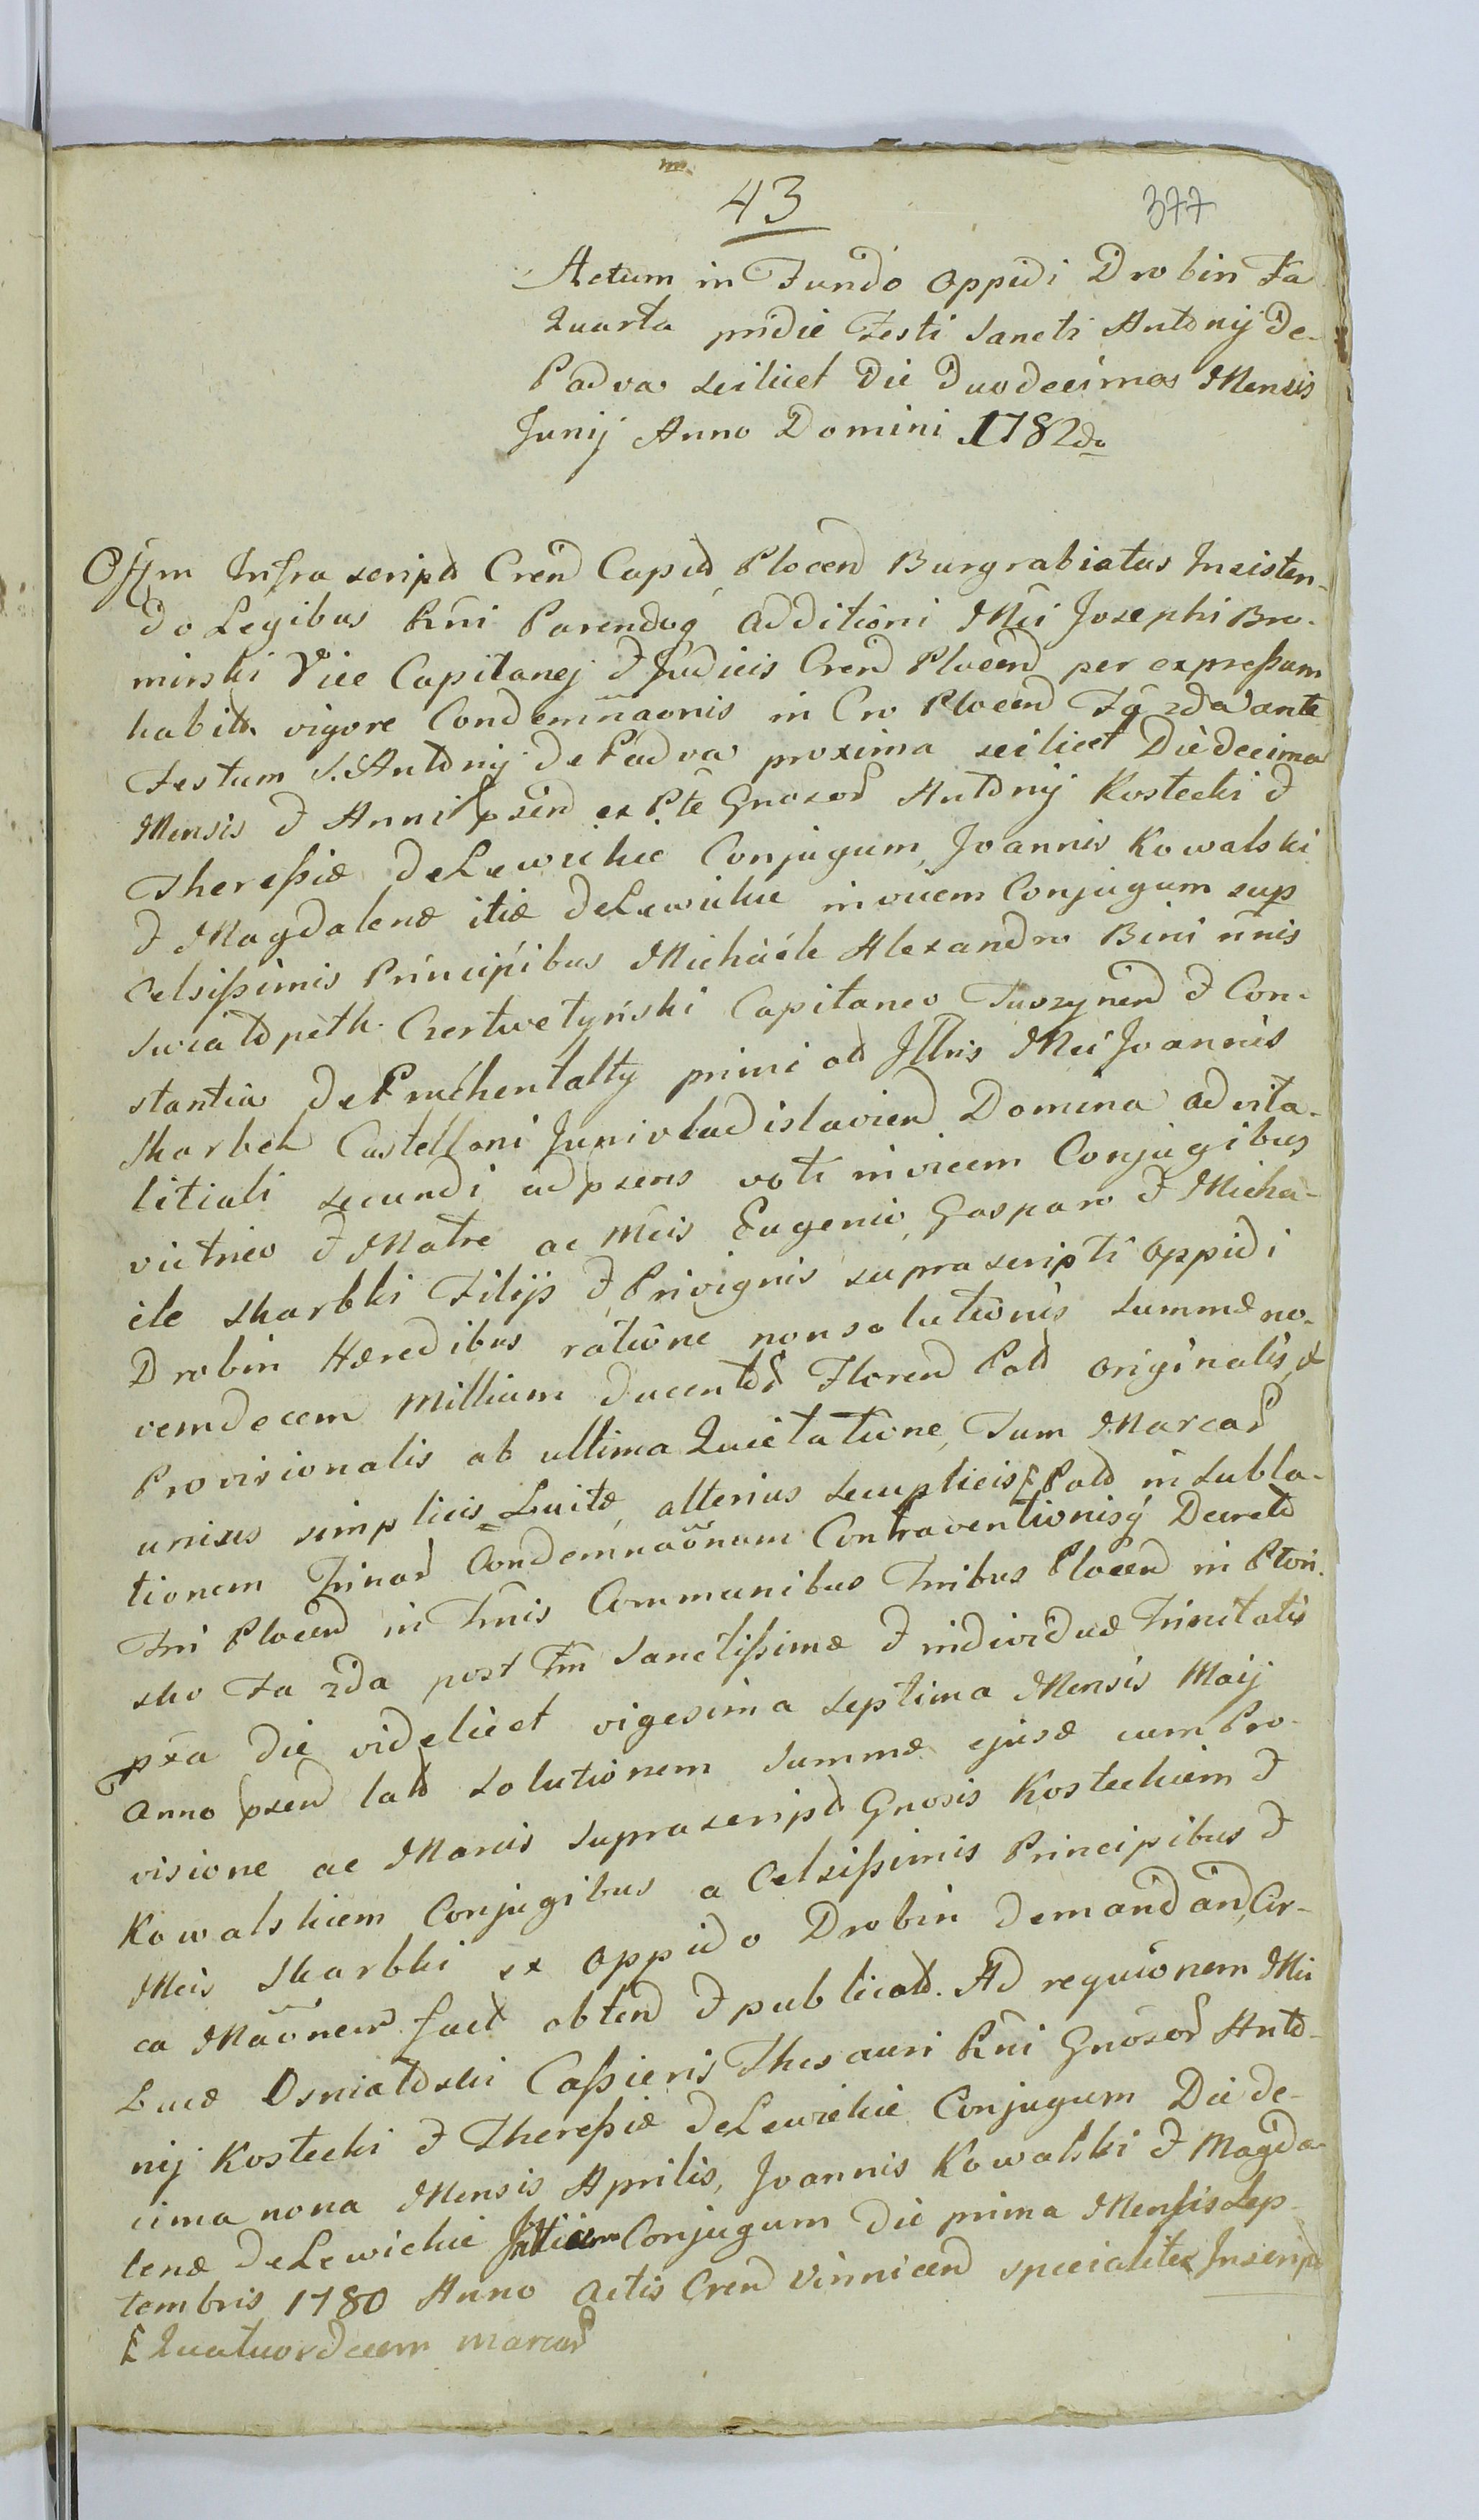 43
377
Actum in Fundo Oppidi Drobin Fa
Quarta pridie Festi Sancti Antonij de
Padva scilicet Die Duodecima Mensis
Junij Anno Domini 1782do
Offm Infra script Cren Capit Plocen Burgrabiatus Insisten-
do Legibus Rni Parendoq Additioni Mci Josephi Bro-
minski Vice Capitanej & Judicis Cren Plocen per expressum
habit vigore Condemnaonis in Cro Plocen Fa 2da ante
Festum S. Antonij de Padva proxima scilicet Die decima
Mensis & Anni psen ex Pte Gnosor Antonij Kostecki &
Theressiæ de Lewickie Conjugum, Joannis Kowalski
& Magdalenæ itiæ de Lewickie invicem Conjugum sup
Celsissimis Principibus Michaele Alexandro Bini nnis
Swiatopełk Czertwetyński Capitaneo Tuszynen & Con-
stantia de Pruchentalty primi ad Illris Mci Joannis
Skarbek Castellani Junivladislavien Domina advita-
litiali secundi adpsens voti invicem Conjugibus
victrico & Matre ac Mcis Eugenio, Gasparo & Micha-
ele Skarbki Filijs & Privignis suprascripti Oppidi
Drobin Hæredibus ratione nonsolutionis Summæ no-
vemdecem Millium ducentor Floren Pol originalis, &
Provisionalis ab ultima Quietatione, Tum Marcar
unius simplicis Luitæ, alterius secuplicis Pol in subla-
tionem Trinar Condemnaonum Contraventionisq Decreto
Tri Plocen in Tmis Communibus Tribus Plocen in Ptori-
sko Fa 2da post Fm Sanctissimæ & individuæ Trinitatis
pxa die videlicet vigesima septima Mensis Maij
Anno psen lat solutionem Summæ ejusæ cum Pro-
visione ac Marcis suprascript Gnosis Kosteckiem &
Kowalskiem Conjugibus a Celsissimis Principibus &
Mcis Skarbki ex Oppido Drobin demandan, Cir-
ca Maonem fact obten & publicat. Ad requionem Mci
Lucæ Osniatoski Cassieris Thesauri Rni Gnosor Anto-
nij Kostecki & Theressiæ de Lewickie Conjugum Die de-
cima nona Mensis Aprilis, Joannis Kowalski & Magda-
lenæ de Lewickie Conjugum die prima Mensis Sep-
tembris 1780 Anno Actis Cren Vinnicen specialiter Inscript
Quatuordecem marcar